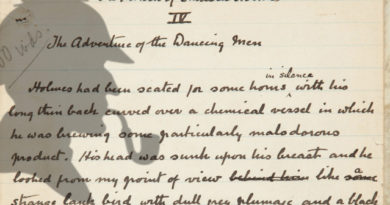 IV
The Adventure of the Dancing Men
in silence
Holmes had been seated for some hours with his
long thin back curved over a chemical vessel in which
he was brewing some particularly malodorous
product. His head was sunk upon his breast and he
looked from my point of view behind him like a
strange lank bird with dull grey plumage and a black